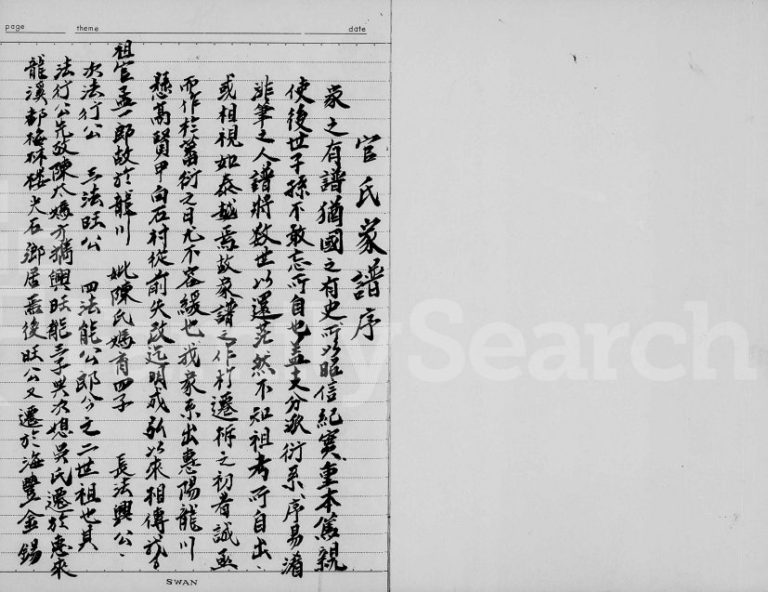 page theme date
官氏家譜序
家之有譜猶國之有史所以昭信紀實重本篤親
使後世子孫不敢忘所自也蓋支分派衍系序易淆
非筆之人譜將數世以還茫然不知祖考所自出
或相視如秦越焉故家譜之作於遷柝之初者誠亟
而作於蕃衍之日尤不容緩也我家系出惠陽龍川
懸高賢甲向石村從前失改迄明成弘以來相傳
祖官孟一郎故於龍川 妣陳氏媽育四子 長法興公
次法行公 三法旺公 四法能公郎公之二世祖也其
法行公先故陳大媽方携興旺能三子與次媳吳氏遷於惠來
龍溪都梅林楼大石鄉居焉後旺公又遷於海豐金錫
SWAN
FamilySearch